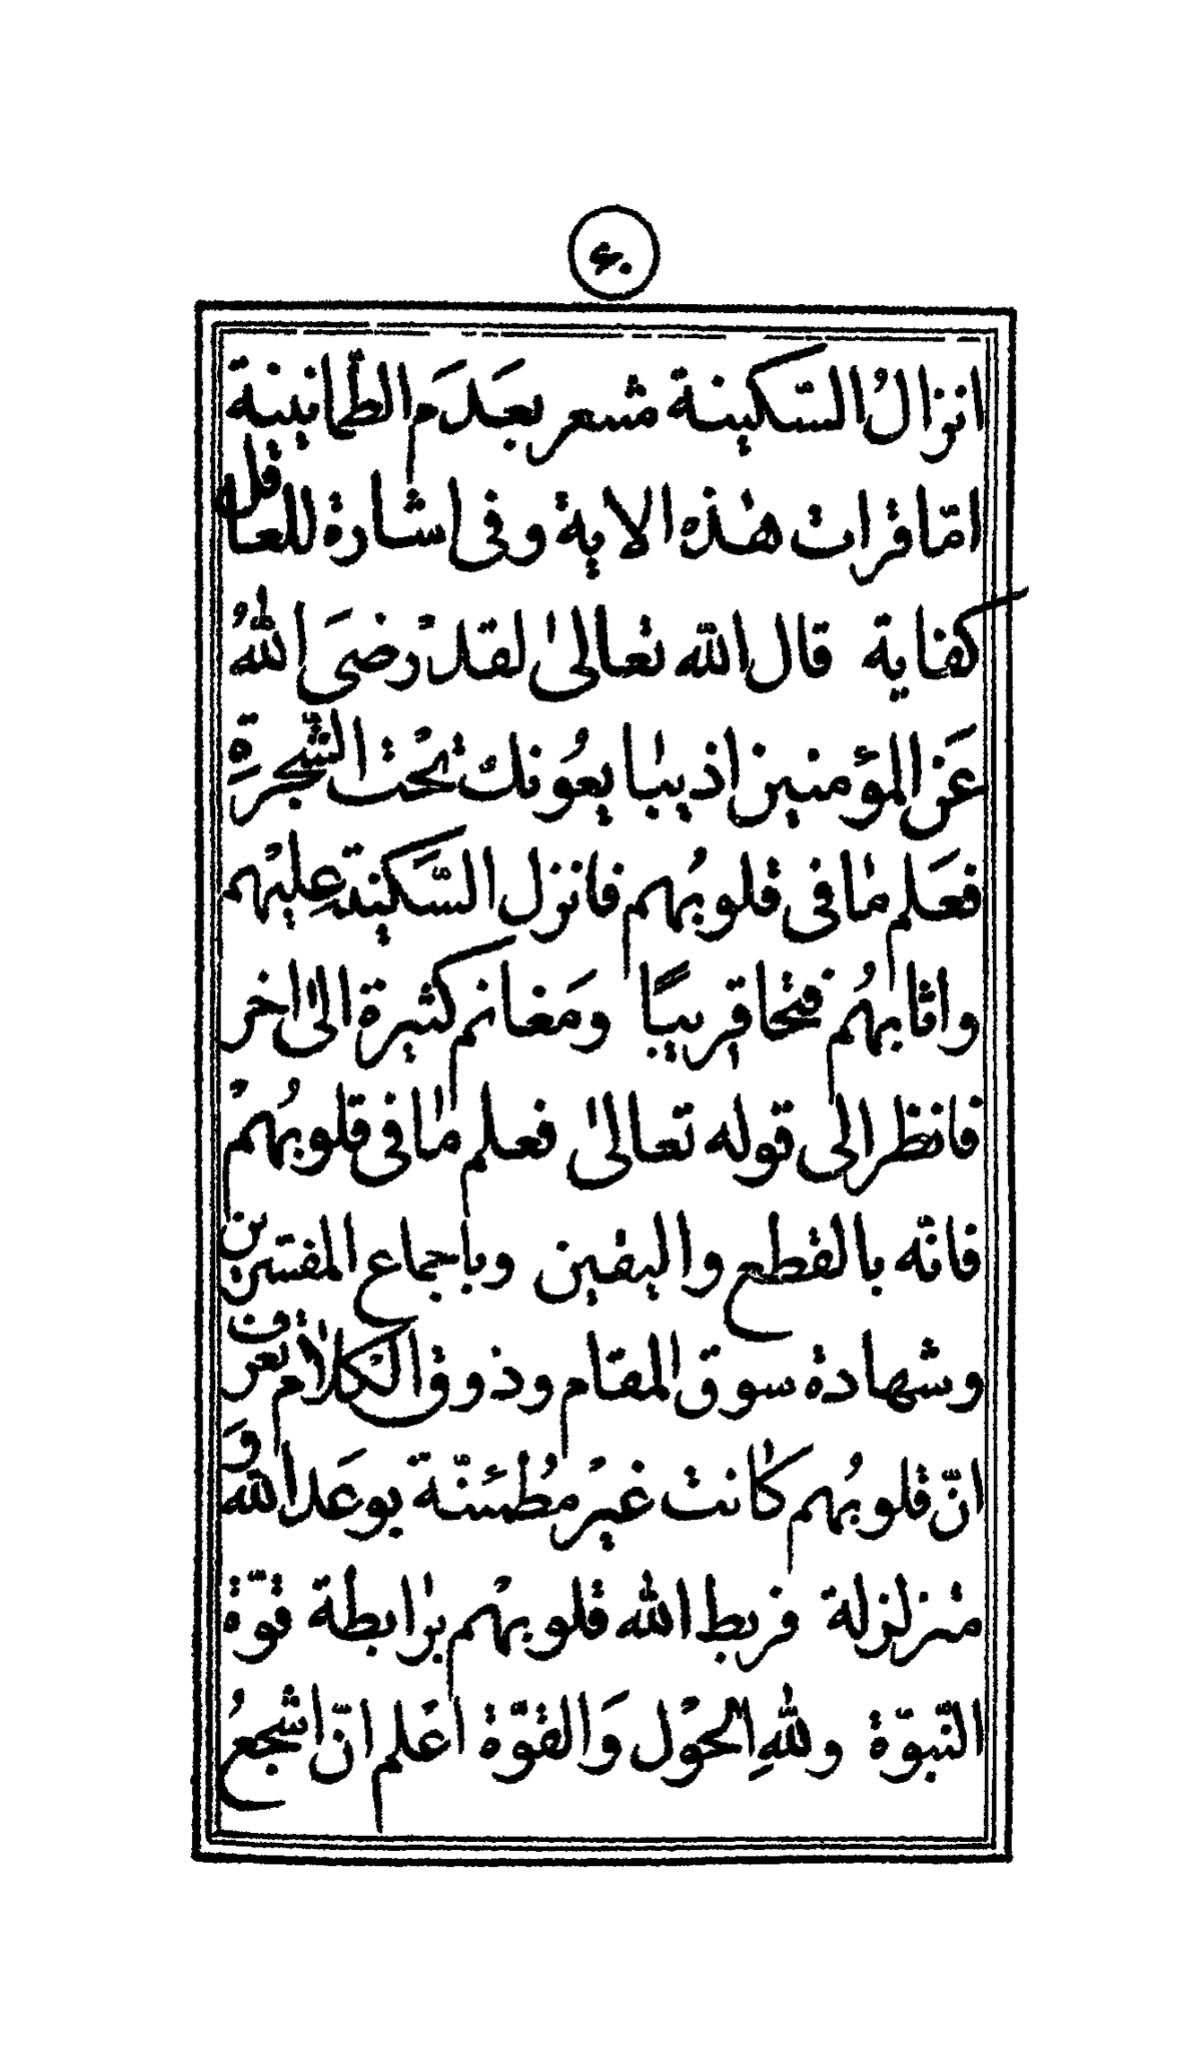 ۶۰
انزالُ السّكينة مشعر بعَدَم الطّمانينة
امّا قرات هٰذه الاية وفى اشارة للعاقل
كفاية قال الله تعالىٰ لقد رضىَ اللهُ
عَن المؤمنين اذ يبٰايعُونك تحْت الشّجرةِ
فعَلم مٰا فى قلوبُهم فانزل السَّكينة عليْهم
واثابهُم فتحا قريبًا ومَغانم كثيرة الىٰ اخر
فانظر الى قوله تعالىٰ فعلم مٰا فى قلوبُهمْ
فانّه بالقطع واليقين وباجماع المفسّرين
وشهادة سوق المقام وذوق الكلام تعرف
انّ قلوبُهم كٰانت غيْر مُطمَئنّة بوعَد الله وَ
متزلزلة فربط الله قلوبهْم برٰابطة قوّة
النّبوّة وللهِ الحوْل وَالقوّة اعَلم انّ اشجعُ